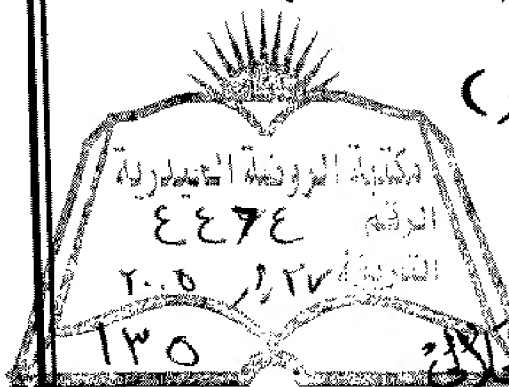 مكتبة الروضة الحيدرية
الرقم ٤٤٦٤
التاريخ ٢٧ / ٢٠٠٥
١٣٥